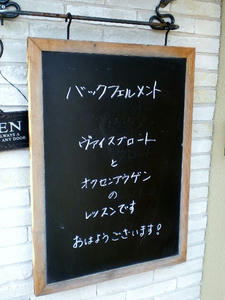 バックフェルメント
ヴァイスブロート
と
オクセンアウゲン
の
レッスンです
おはようございます!
EN
ALWAYS A
ANY DOOR